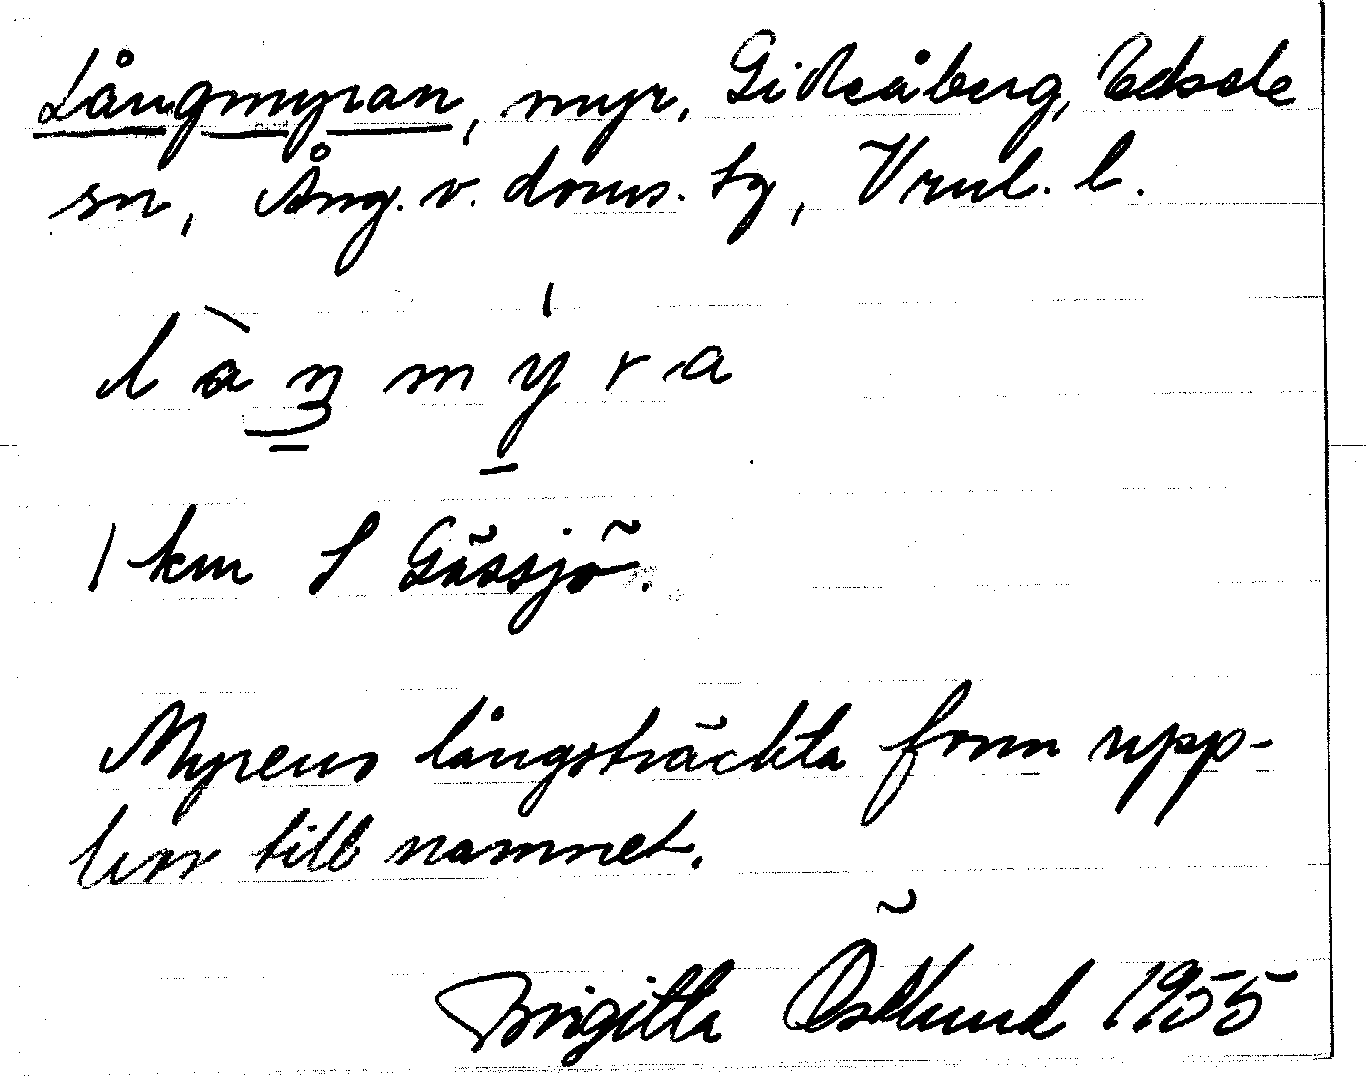 Långmyran, myr, Gideåberg, Edsele
sn, Ång. v. doms. tg, Vrnl. l.
l à ŋ m y̍ r a
1 km S Gässjö.
Myrens långsträckta form upp-
hov till namnet.
Birgitta Östlund 1955